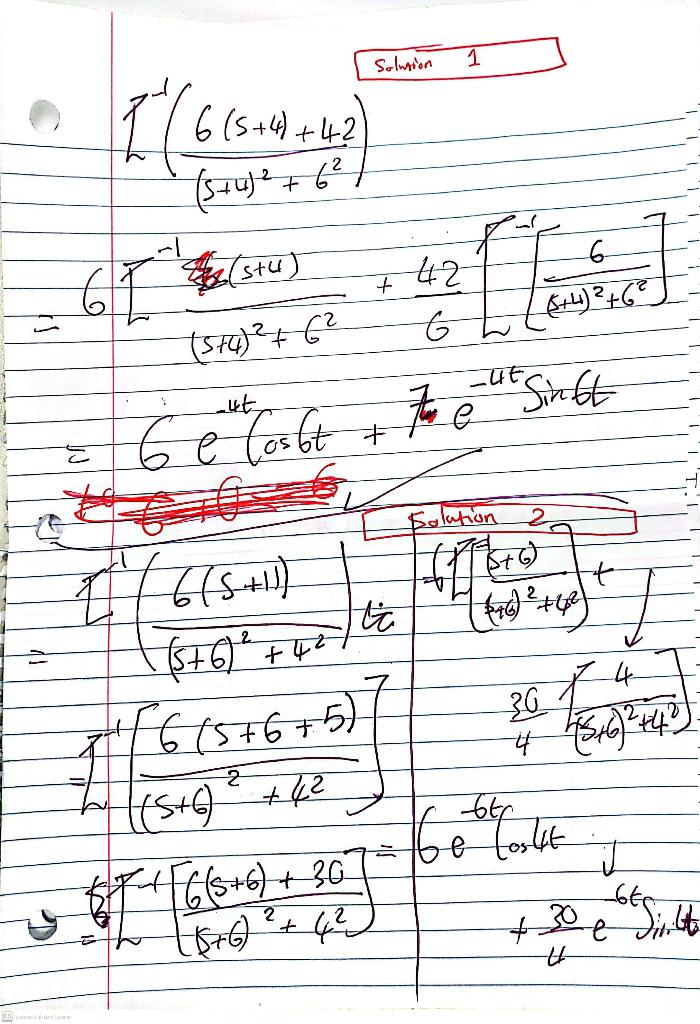 Solution 1
L⁻¹ ( (6(s+4) + 42) / ((s+4)² + 6²) )
= 6 L⁻¹ (s+4) / ((s+4)² + 6²) + 42/6 L⁻¹ [ 6 / ((s+4)² + 6²) ]
= 6 e^(-4t) Cos6t + 7 e^(-4t) Sin6t
Solution 2
= L⁻¹ ( 6(s+11) / ((s+6)² + 4²) )
= L⁻¹ [ 6(s+6+5) / ((s+6)² + 4²) ]
= L⁻¹ [ (6(s+6) + 30) / ((s+6)² + 4²) ]
6 L⁻¹ [ (s+6) / ((s+6)² + 4²) ] +
30/4 L [ 4 / ((s+6)² + 4²) ]
= 6 e^(-6t) Cos4t
+ 30/4 e^(-6t) Sin4t
CS Scanned with CamScanner